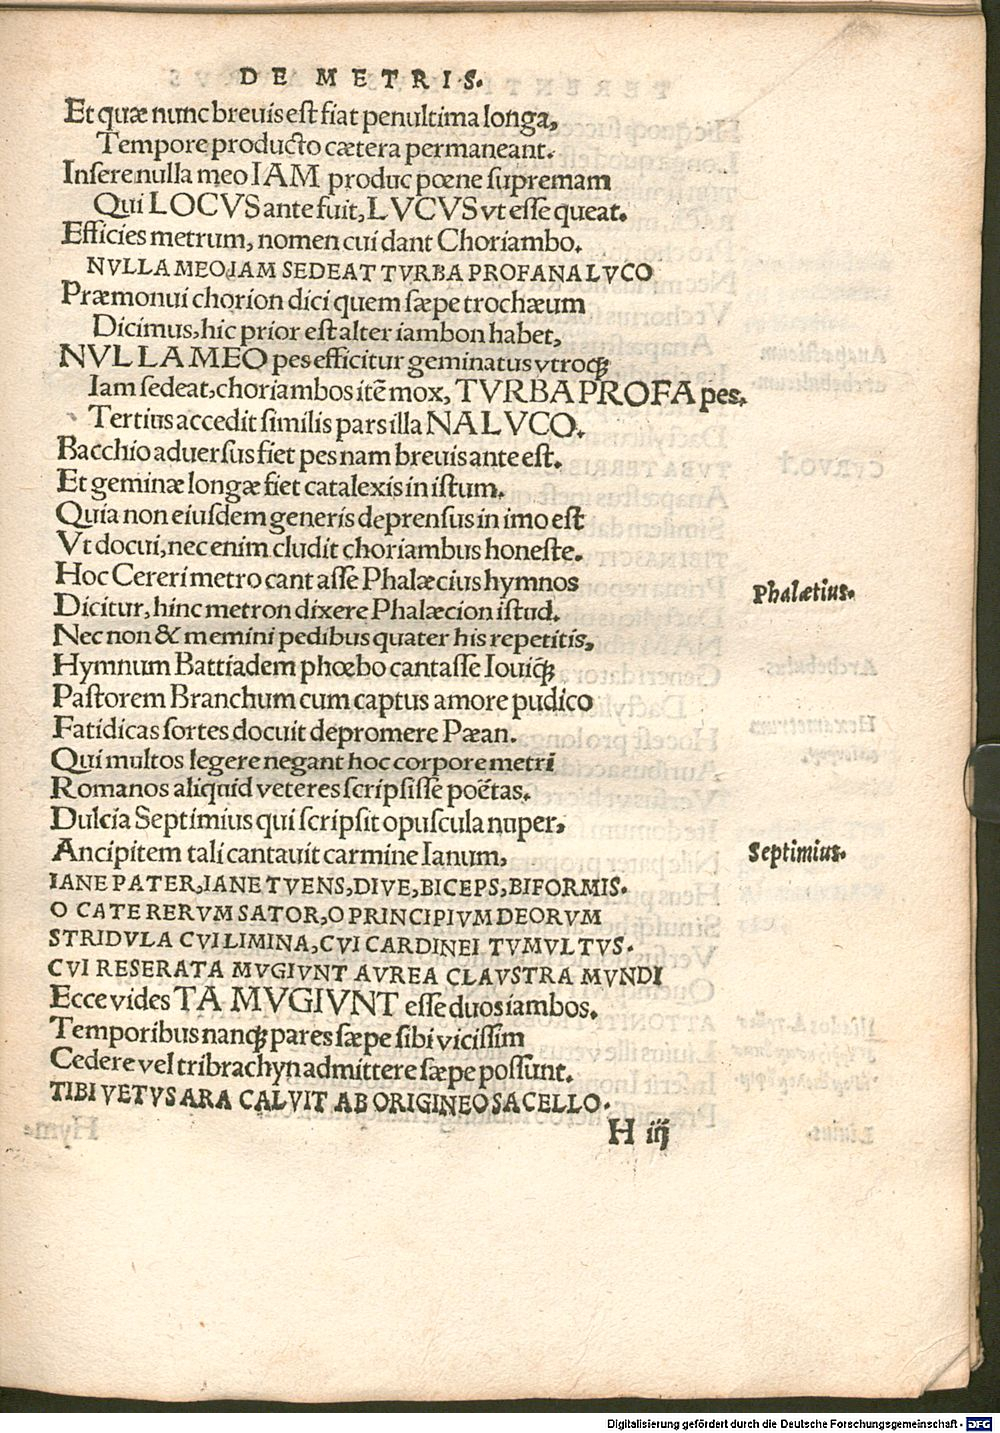 DE METRIS.
Et quæ nunc breuis est fiat penultima longa,
Tempore producto cætera permaneant.
Insere nulla meo IAM produc pœne supremam
Qui LOCVS ante fuit, LVCVS vt esse queat.
Efficies metrum, nomen cui dant Choriambo.
NVLLA MEO IAM SEDEAT TVRBA PROFANA LVCO
Præmonui chorion dici quem sæpe trochæum
Dicimus, hic prior est alter iambon habet,
NVLLA MEO pes efficitur geminatus vtroqꝫ
Iam sedeat, choriambos itē mox, TVRBA PROFA pes.
Tertius accedit similis pars illa NALVCO.
Bacchio aduersus fiet pes nam breuis ante est.
Et geminæ longæ fiet catalexis in istum.
Quia non eiusdem generis deprensus in imo est
Vt docui, nec enim cludit choriambus honeste.
Hoc Cereri metro cantasse Phalæcius hymnos
Phalætius.
Dicitur, hinc metron dixere Phalæcion istud.
Nec non & memini pedibus quater his repetitis,
Hymnum Battiadem phœbo cantasse Iouiqꝫ
Pastorem Branchum cum captus amore pudico
Fatidicas sortes docuit depromere Pæan.
Qui multos legere negant hoc corpore metri
Romanos aliquid veteres scripsisse poëtas.
Dulcia Septimius qui scripsit opuscula nuper,
Ancipitem tali cantauit carmine Ianum,
Septimius.
IANE PATER, IANE TVENS, DIVE, BICEPS, BIFORMIS.
O CATE RERVM SATOR, O PRINCIPIVM DEORVM
STRIDVLA CVI LIMINA, CVI CARDINEI TVMVLTVS.
CVI RESERATA MVGIVNT AVREA CLAVSTRA MVNDI
Ecce vides TA MVGIVNT esse duos iambos.
Temporibus nanqꝫ pares sæpe sibi vicissim
Cedere vel tribrachyn admittere sæpe possunt.
TIBI VETVS ARA CALVIT AB ORIGINEO SACELLO.
H iij
Digitalisierung gefördert durch die Deutsche Forschungsgemeinschaft - DFG